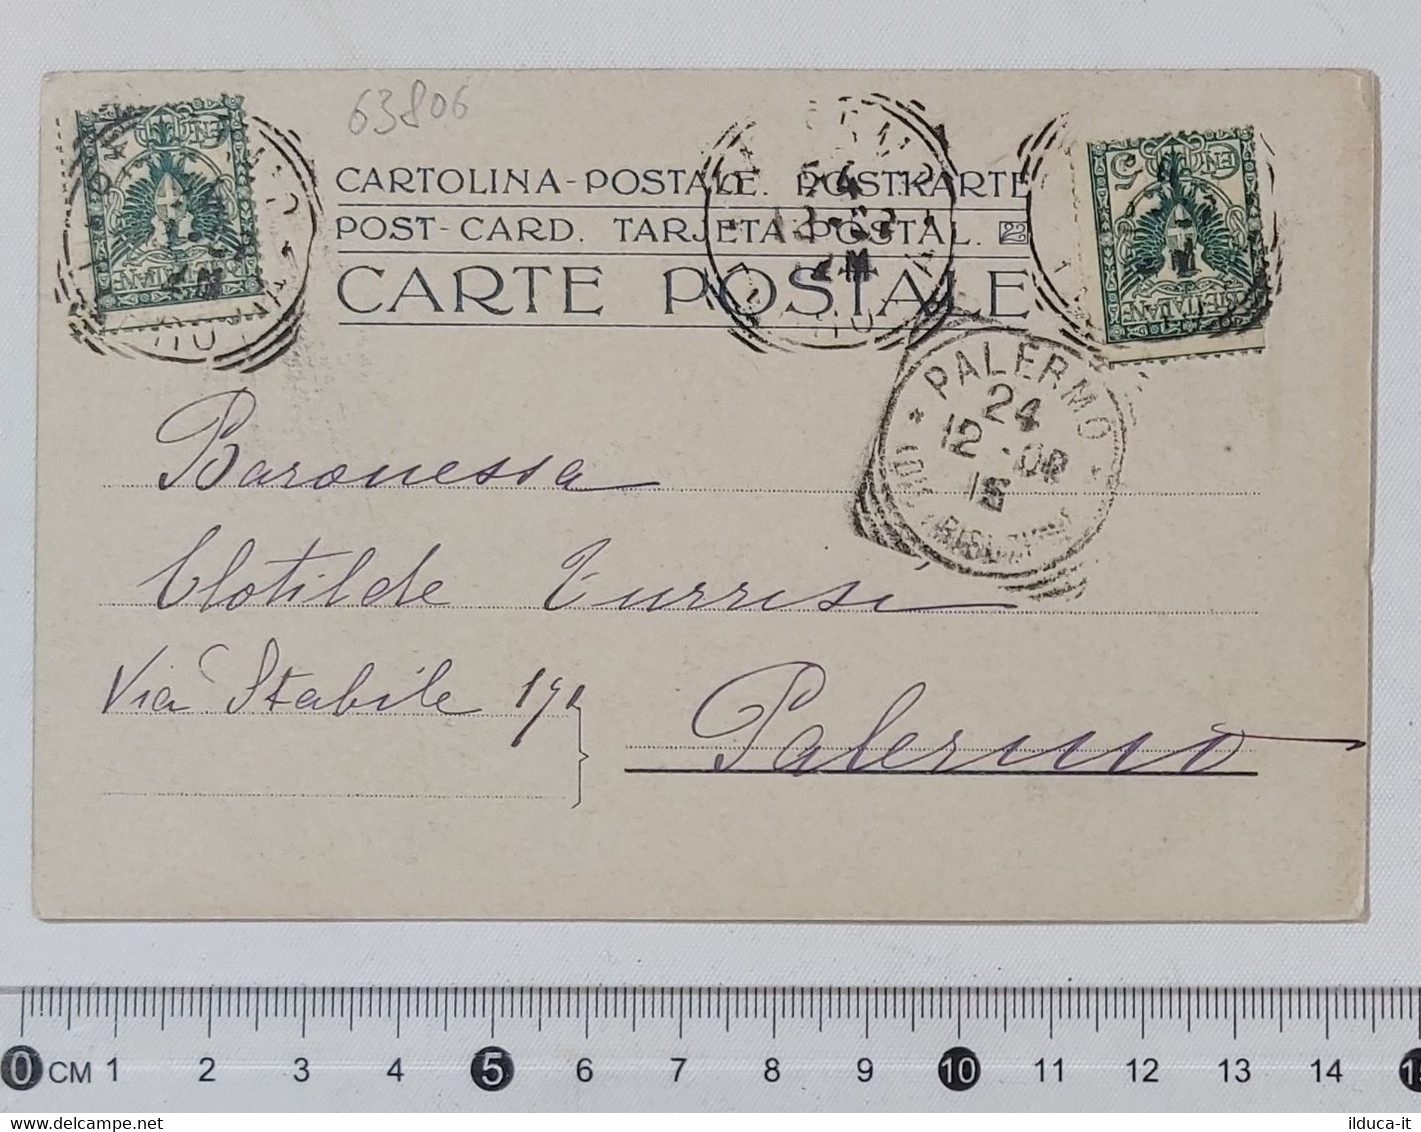 63806
CARTOLINA-POSTALE. POSTKARTE
POST-CARD. TARJETA POSTAL.
CARTE POSTALE
PALERMO
24
12
Baronessa
Clotilde Turrisi
Via Stabile
Palermo
0 CM 1 2 3 4 5 6 7 8 9 10 11 12 13 14
ilduca-it